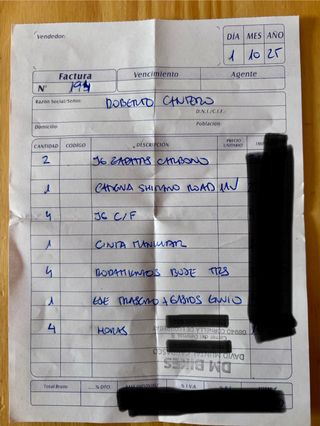 Vendedor:
DÍA MES AÑO
1 10 25
Factura Vencimiento Agente
N° 194
Razón Social/Señor: ROBERTO CANTERO
D.N.I./C.I.F.:
Domicilio Población:
CANTIDAD CÓDIGO DESCRIPCIÓN PRECIO UNITARIO
2 JG ZAPATAS CARBONO
1 CADENA SHIMANO ROAD 11V
4 JG C/F
1 CINTA MANILLAR
4 RODAMIENTOS BUJE TRS
1 EJE TRASERO + GASTOS ENVIO
4 HORAS
08940 CORNELLÀ DE LLOBREGAT
DAVID
DM BIKES
Total Bruto % DTO. % I.V.A.